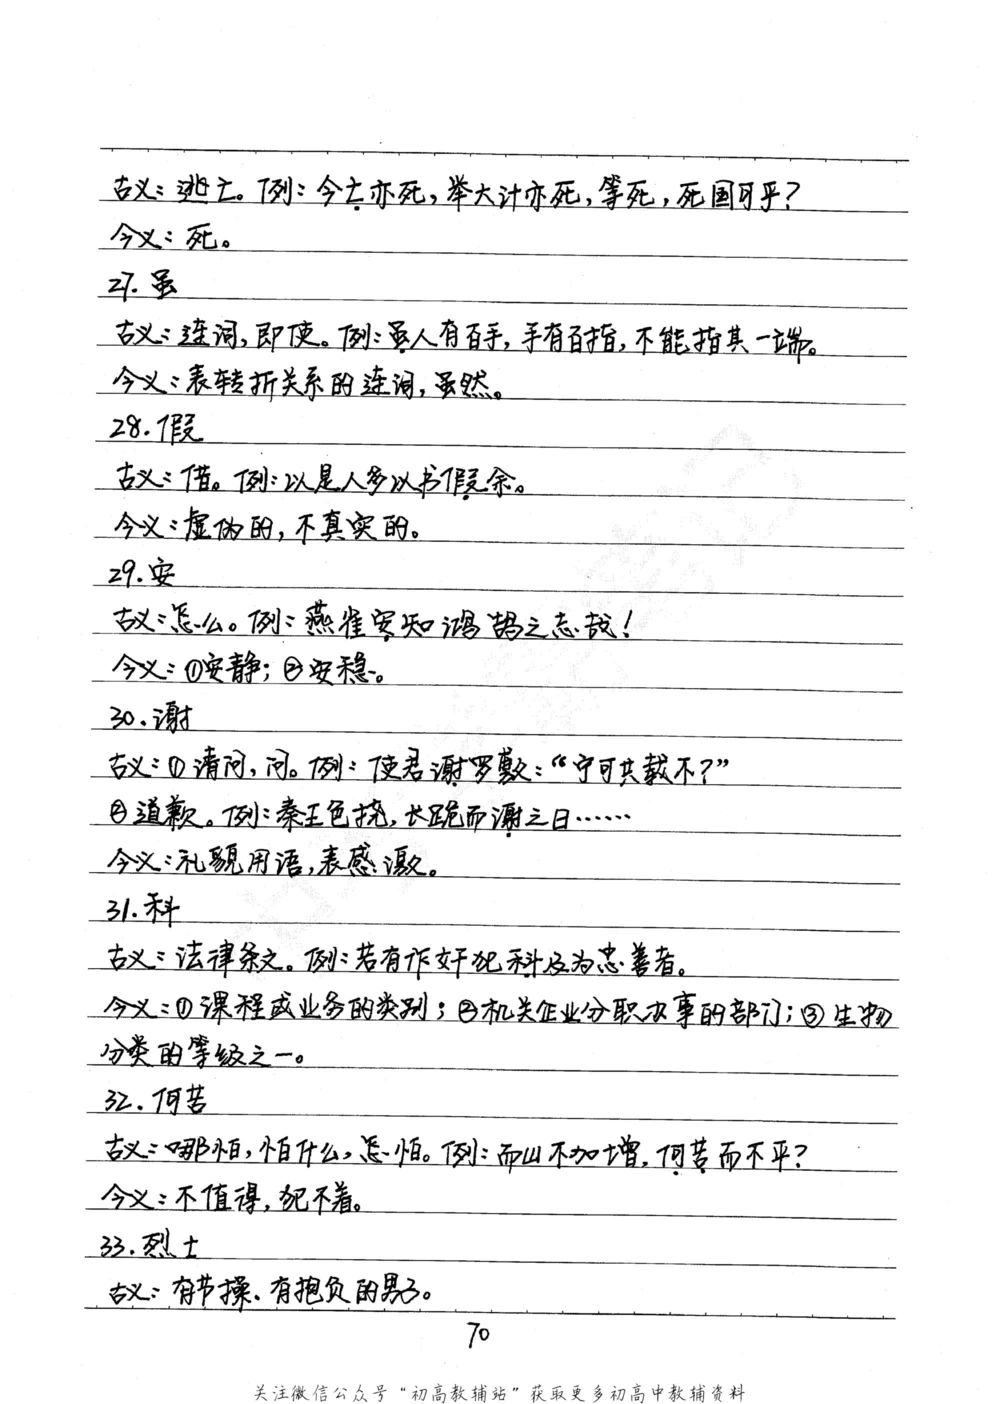 古义：逃亡。例：今亡亦死，举大计亦死，等死，死国可乎？
今义：死。
27.虽
古义：连词，即使。例：虽人有百手，手有百指，不能指其一端。
今义：表转折关系的连词，虽然。
28.假
古义：借。例：以是人多以书假余。
今义：虚伪的，不真实的。
29.安
古义：怎么。例：燕雀安知鸿鹄之志哉！
今义：①安静；②安稳。
30.谢
古义：①请问，问。例：使君谢罗敷：“宁可共载不？”
②道歉。例：秦王色挠，长跪而谢之曰……
今义：礼貌用语，表感激。
31.科
古义：法律条文。例：若有作奸犯科及为忠善者。
今义：①课程或业务的类别；②机关企业分职办事的部门；③生物
分类的等级之一。
32.何苦
古义：哪怕，怕什么，怎怕。例：而山不加增，何苦而不平？
今义：不值得，犯不着。
33.烈士
古义：有节操、有抱负的男子。
70
关注微信公众号“初高教辅站”获取更多初高中教辅资料